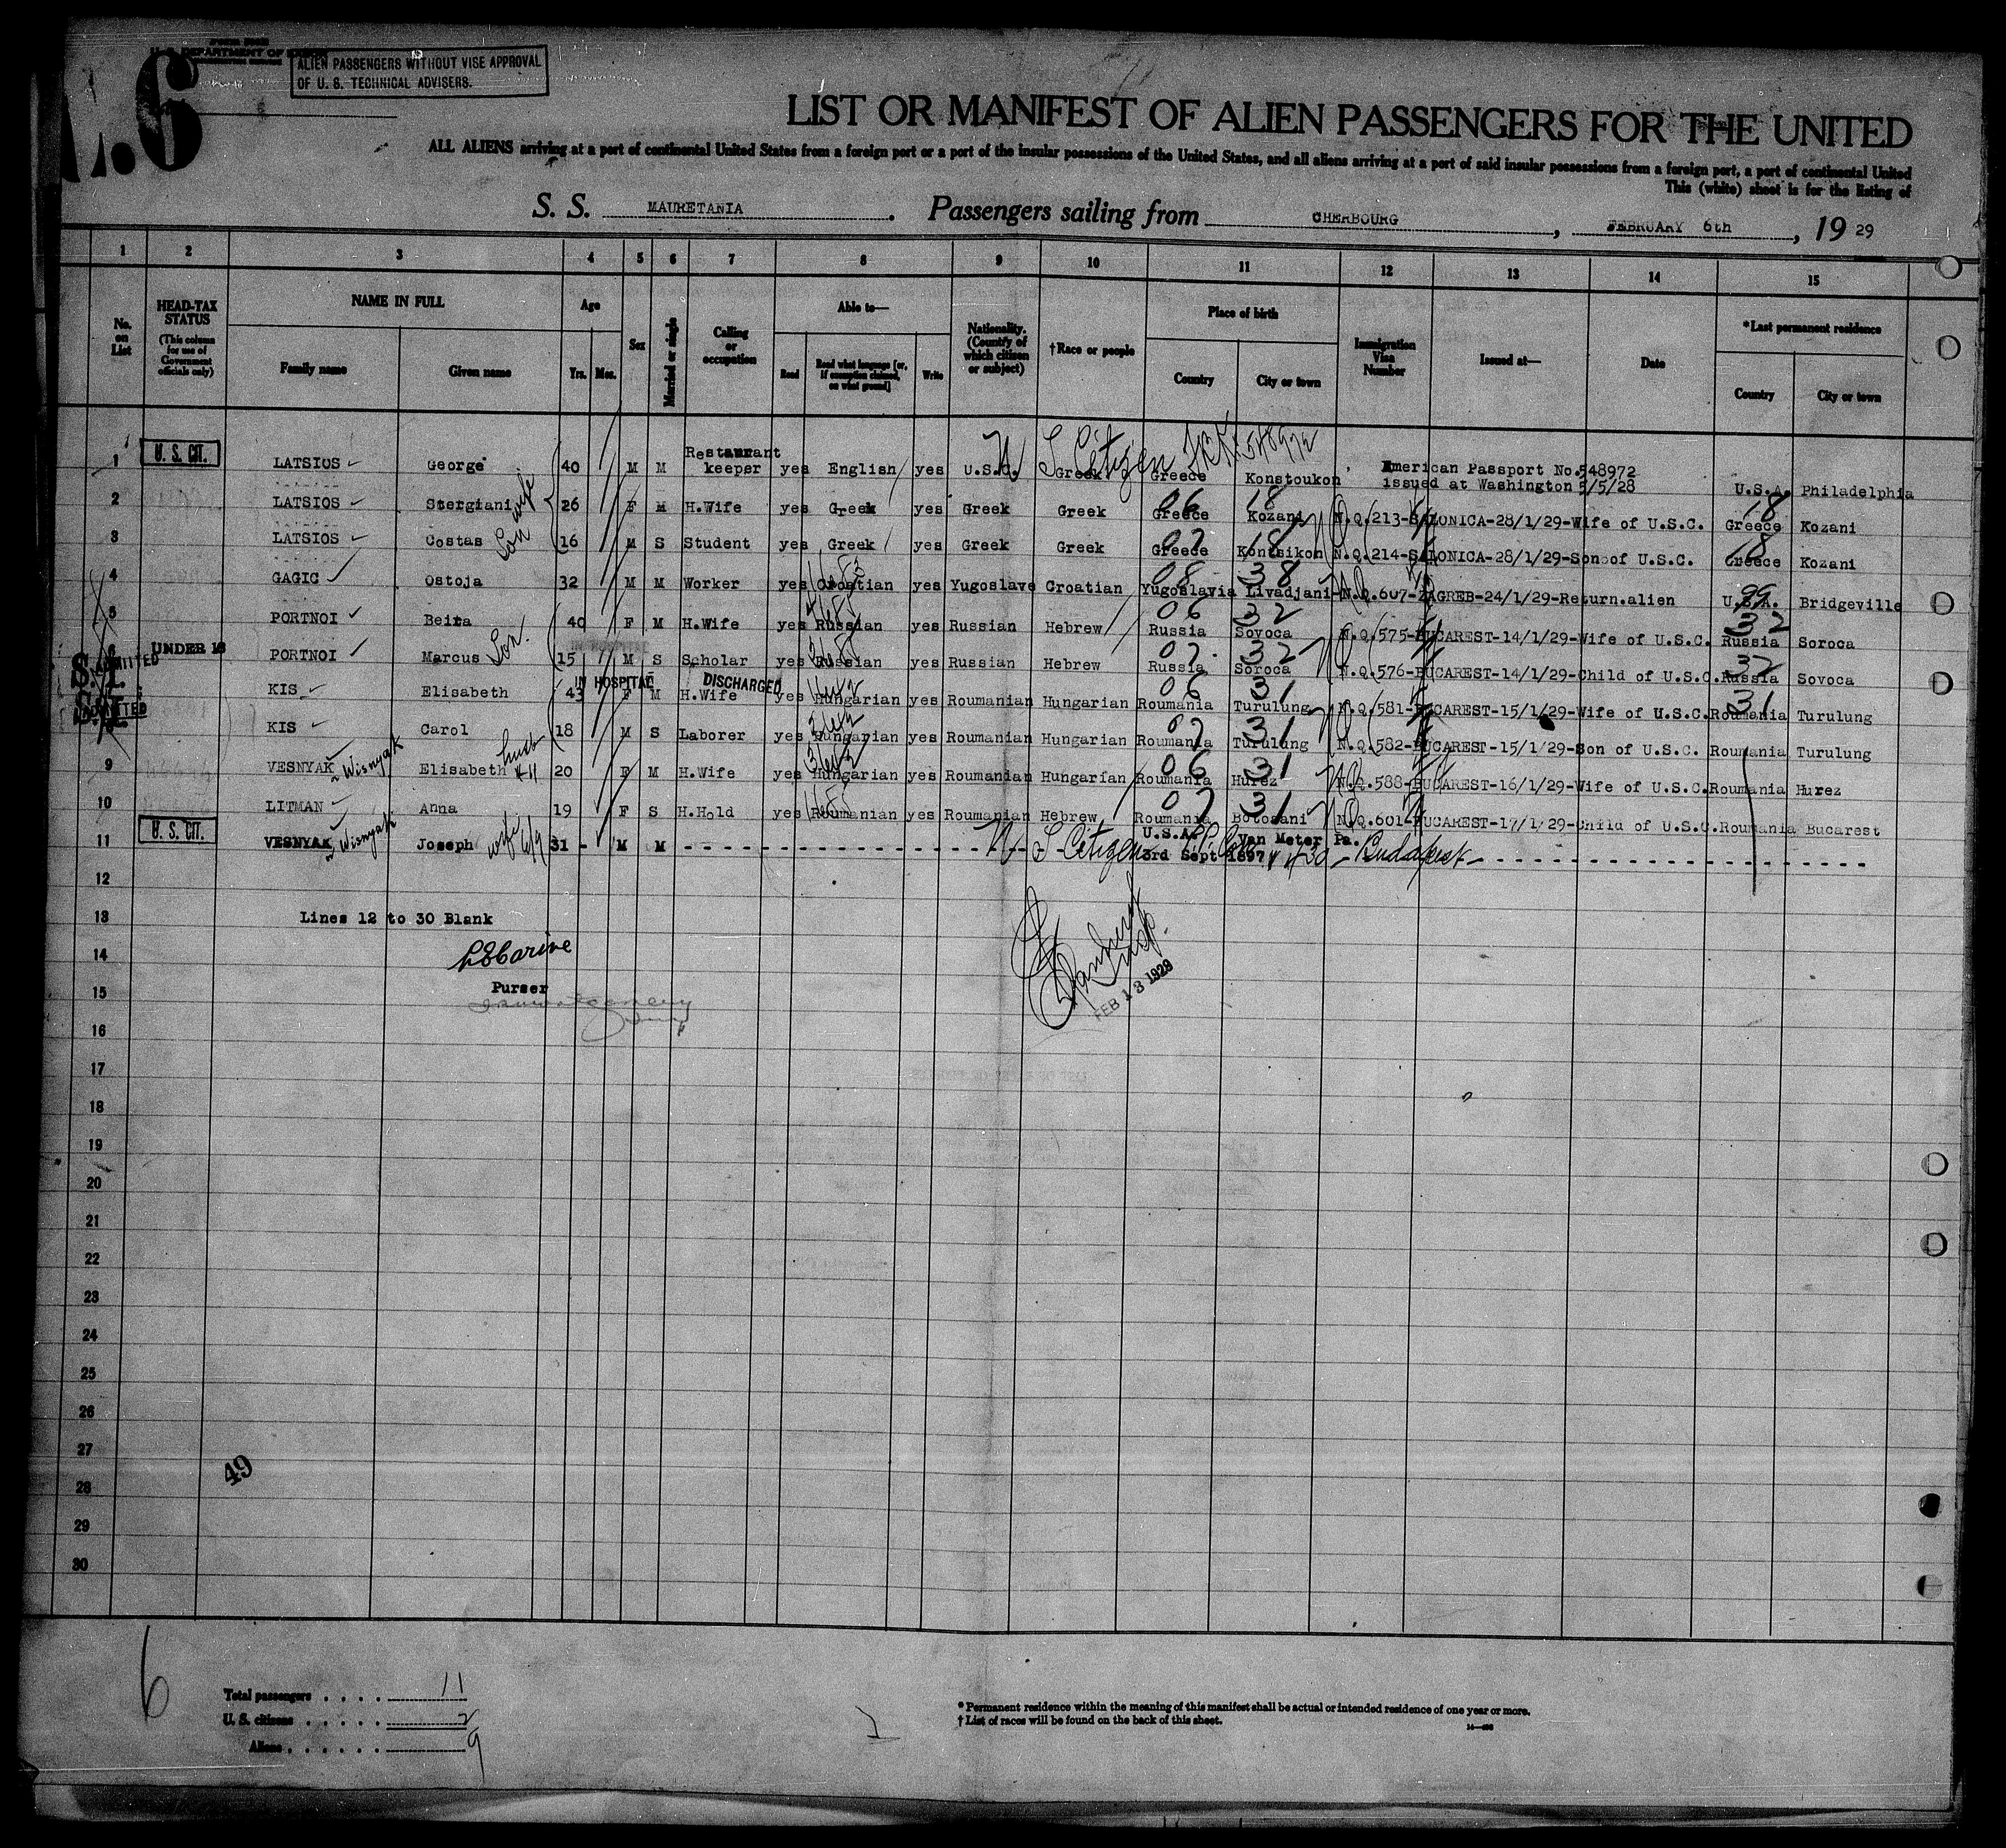 U. S. DEPARTMENT OF LABOR
ALIEN PASSENGERS WITHOUT VISE APPROVAL
OF U. S. TECHNICAL ADVISERS.
6
LIST OR MANIFEST OF ALIEN PASSENGERS FOR THE UNITED
ALL ALIENS arriving at a port of continental United States from a foreign port or a port of the insular possessions of the United States, and all aliens arriving at a port of said insular possessions from a foreign port, a port of continental United
This (white) sheet is for the listing of
S. S. MAURETANIA. Passengers sailing from CHERBOURG, FEBRUARY 6th, 19 29
1 2 3 4 5 6 7 8 9 10 11 12 13 14 15
No. on List
HEAD-TAX STATUS
(This column for use of Government officials only)
NAME IN FULL
Family name
Given name
Age
Yrs. Mos.
Sex
Married or single
Calling or occupation
Able to—
Read
Read what language [or, if exemption claimed, on what ground]
Write
Nationality. (Country of which citizen or subject)
†Race or people
Place of birth
Country
City or town
Immigration Visa Number
Issued at—
Date
*Last permanent residence
Country
City or town
1 U. S. CIT. LATSIOS George 40 M M Restaurant keeper yes English yes U.S.C. Greek Greece Konstoukon American Passport No.548972 issued at Washington 5/5/28 U.S.A. Philadelphia
U S Citizen
2 LATSIOS Stergiani wife 26 F M H.Wife yes Greek yes Greek Greek Greece 06 Kozani 18 N.Q.213-SALONICA-28/1/29-Wife of U.S.C. Greece 18 Kozani
3 LATSIOS Costas Son 16 M S Student yes Greek yes Greek Greek Greece 07 Kontsikon 18 N.Q.214-SALONICA-28/1/29-Son of U.S.C. Greece 18 Kozani
4 GAGIC Ostoja 32 M M Worker yes Croatian yes Yugoslave Croatian Yugoslavia 08 Livadjani 38 N.Q.607-ZAGREB-24/1/29-Return.alien U.S.A. 99 Bridgeville
5 PORTNOI Beira 40 F M H.Wife yes Russian yes Russian Hebrew Russia 06 Sovoca 32 N.Q.575-BUCAREST-14/1/29-Wife of U.S.C. Russia 32 Soroca
6 UNDER 16 PORTNOI Marcus Son. 15 IN HOSPITAL M S Scholar yes Russian yes Russian Hebrew Russia 07 Soroca 32 N.Q.576-BUCAREST-14/1/29-Child of U.S.C. Russia 32 Sovoca
S.I. ADMITTED
IN HOSPITAL DISCHARGED
KIS Elisabeth 43 F M H.Wife yes Hungarian yes Roumanian Hungarian Roumania 06 Turulung 31 N.Q.581-BUCAREST-15/1/29-Wife of U.S.C. Roumania 31 Turulung
S.I. ADMITTED
KIS Carol 18 M S Laborer yes Hungarian yes Roumanian Hungarian Roumania 07 Turulung 31 N.Q.582-BUCAREST-15/1/29-Son of U.S.C. Roumania Turulung
9 VESNYAK Wisnyak Elisabeth husb #11 20 F M H.Wife yes Hungarian yes Roumanian Hungarian Roumania 06 Hurez 31 N.Q.588-BUCAREST-16/1/29-Wife of U.S.C. Roumania Hurez
10 LITMAN Anna 19 F S H.Hold yes Roumanian yes Roumanian Hebrew Roumania 07 Botosani 31 N.Q.601-BUCAREST-17/1/29-Child of U.S.C. Roumania Bucarest
11 U. S. CIT. VESNYAK Wisnyak Joseph wife 31 - M M U S Citizen U.S.A. Van Meter Pa. 3rd Sept 1897 Budapest
12
13 Lines 12 to 30 Blank
14
15 Purser
FEB 13 1929
16
17
18
19
20
21
22
23
24
25
26
27
49
28
29
30
6
Total passengers . . . . 11
U. S. citizens . . . . . 2
Aliens . . . . . . 9
* Permanent residence within the meaning of this manifest shall be actual or intended residence of one year or more.
† List of races will be found on the back of this sheet.